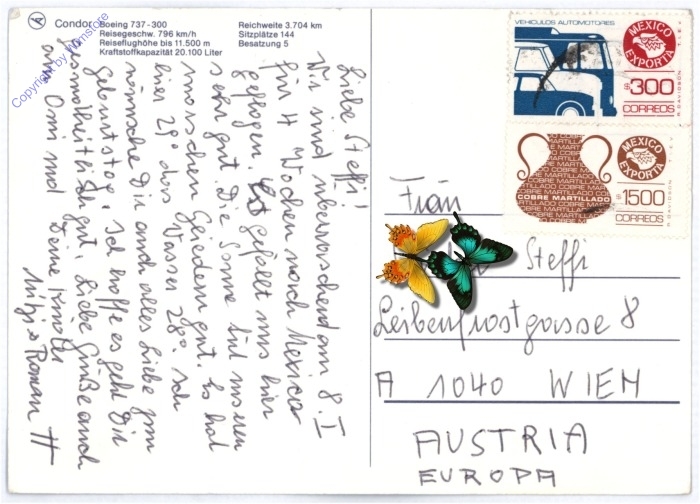 Condor
Boeing 737-300
Reisegeschw. 796 km/h
Reiseflughöhe bis 11.500 m
Kraftstoffkapazität 20.100 Liter
Reichweite 3.704 km
Sitzplätze 144
Besatzung 5
Copyright by Wimstore
Liebe Steffi!
Wir sind überraschend am 8. I
für 4 Wochen nach Mexico
geflogen. Es gefällt uns hier
sehr gut. Die Sonne tut unseren
morschen Gliedern gut. Es hat
hier 29° das Wasser 28°. Ich
wünsche Dir auch alles Liebe zum
Geburtstag. Ich hoffe es geht Dir
gut. Liebe Grüße auch
an Omi und Deine Kinder
Mitzi + Roman H
VEHICULOS AUTOMOTORES
MEXICO
EXPORTA
$300
CORREOS
R. DAVIDSON
COBRE MARTILLADO
MEXICO
EXPORTA
$1500
CORREOS
R. DAVIDSON
Frau
Steffi
Leibenfrostgasse 8
A 1040 WIEN
AUSTRIA
EUROPA